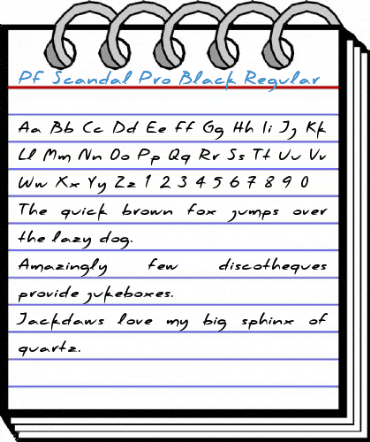 PF Scandal Pro Black Regular
Aa Bb Cc Dd Ee Ff Gg Hh Ii Jj Kk
Ll Mm Nn Oo Pp Qq Rr Ss Tt Uu Vv
Ww Xx Yy Zz 1 2 3 4 5 6 7 8 9 0
The quick brown fox jumps over
the lazy dog.
Amazingly few discotheques
provide jukeboxes.
Jackdaws love my big sphinx of
quartz.